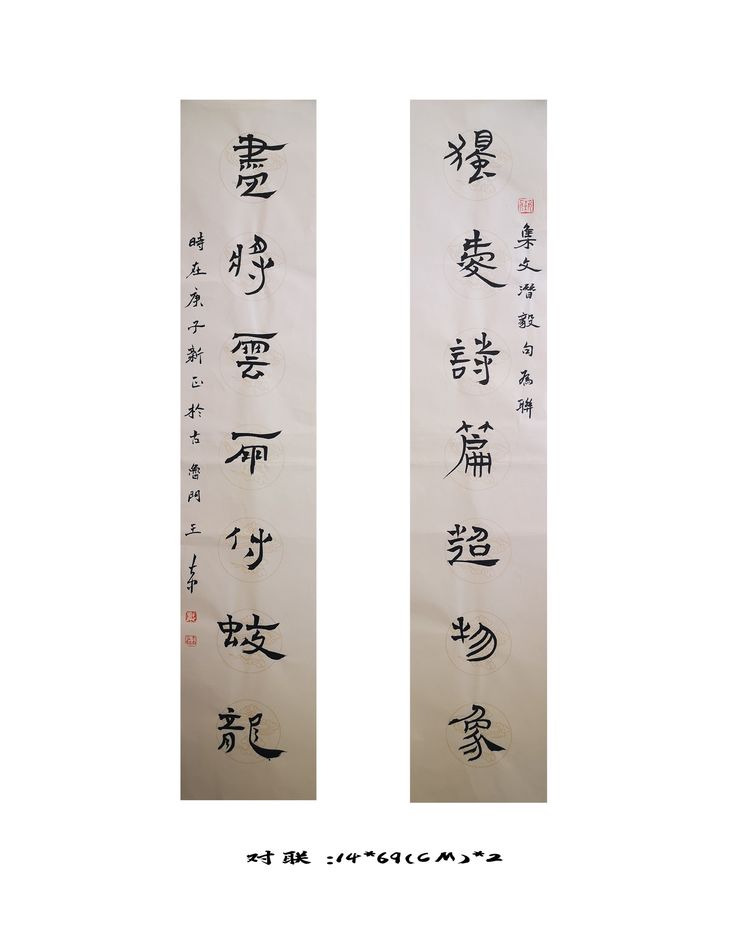 獨愛詩篇超物象
集文潛毅句為聯
盡將雲雨付蛟龍
時在庚子新正於古魯門王
对联:14*69(CM)*2